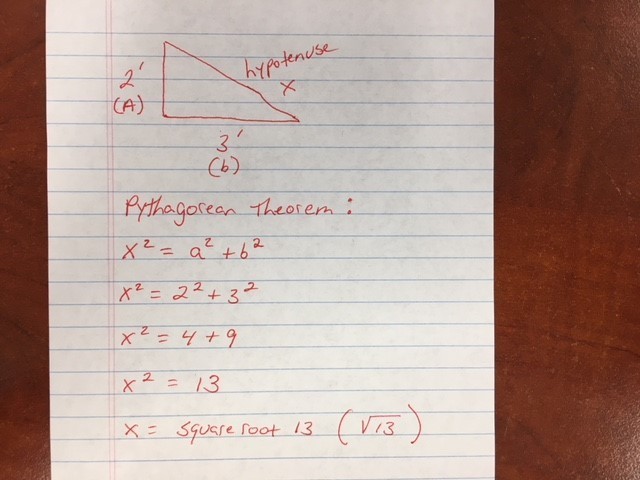 2'
(A)
hypotenuse
x
3'
(b)
Pythagorean Theorem:
x² = a² + b²
x² = 2² + 3²
x² = 4 + 9
x² = 13
x = square root 13 (√13)